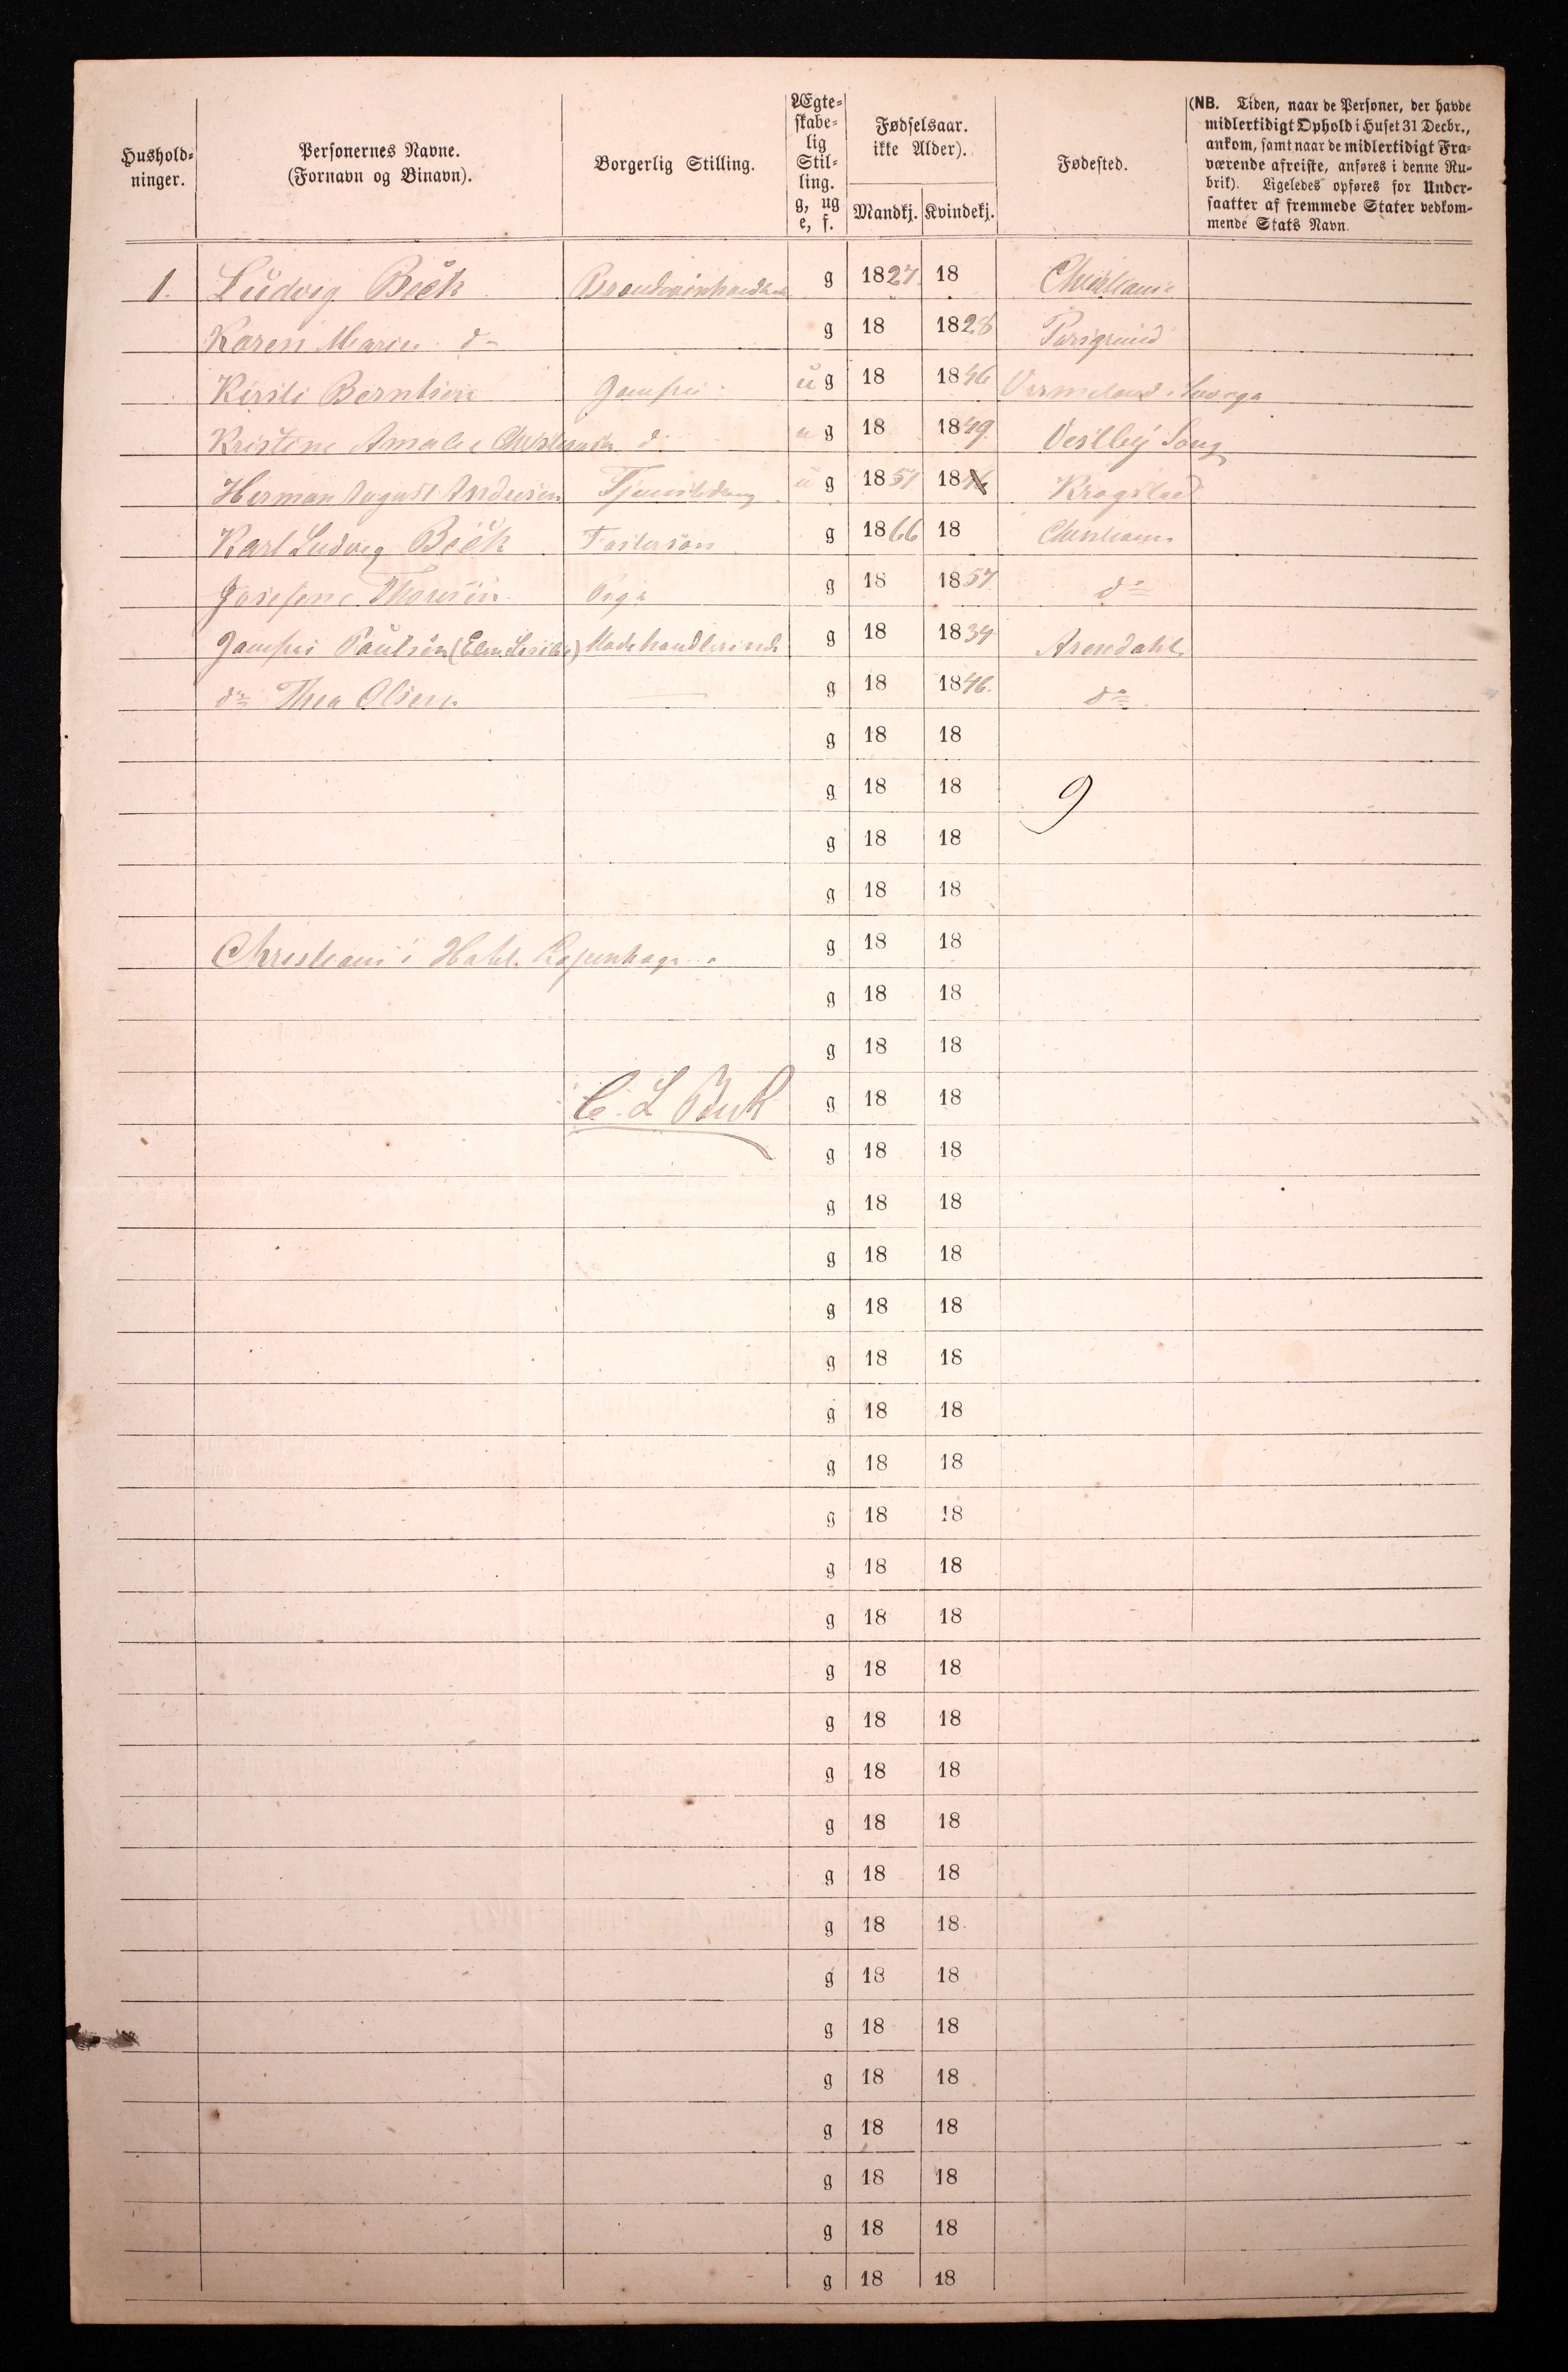 Hushold-
ninger.
Personernes Navne.
(Fornavn og Binavn).
Borgerlig Stilling.
Ægte-
skabe-
lig
Stil-
ling.
g, ug
e, f.
Fødselsaar.
ikke Alder).
Mandkj. Kvindekj.
Fødested.
(NB. Tiden, naar de Personer, der havde
midlertidigt Ophold i Huset 31 Decbr.,
ankom, samt naar de midlertidigt Fra-
værende afreiste, anføres i denne Ru-
brik). Ligeledes opføres for Under-
saatter af fremmede Stater vedkom-
mende Stats Navn.
1. Ludvig Beck g 1827 18 Christiania
Karen Marie do g 18 1828 Porsgrund
Kirsti Berntsen Jomfru ug 18 1846 Vermeland i
Kristine Amalie d ug 18 1849. Vestby Sogn
Herman August Andresen ug 1851 18 Krogstad
Karl Ludvig Beck Fostersøn g 1866 18 Christiania
Josefine Thoresen Pige g 18 1857 do
Jomfru Paulsen Modehandlerinde g 18 1834 Arendahl
do Thea Olsen g 18 1846. do
g 18 18
g 18 18 9
g 18 18
g 18 18
Christiani i Hotel Kopenhagen g 18 18
g 18 18
g 18 18
C. L Beck g 18 18
g 18 18
g 18 18
g 18 18
g 18 18
g 18 18
g 18 18
g 18 18
g 18 18
g 18 18
g 18 18
g 18 18
g 18 18
g 18 18
g 18 18
g 18 18
g 18 18
g 18 18
g 18 18
g 18 18
g 18 18
g 18 18
g 18 18
g 18 18